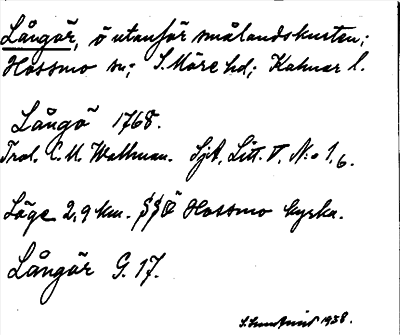 Långör, ö utanför smålandskusten;
Hossmo sn; S. Möre hd; Kalmar l.
Långö 1768.
Trol. C. U. Wallman. Sjk, Litt. V, N:o 1,6.
Läge 2,9 km. SSÖ Hossmo kyrka.
Långör G. 17.
1938.